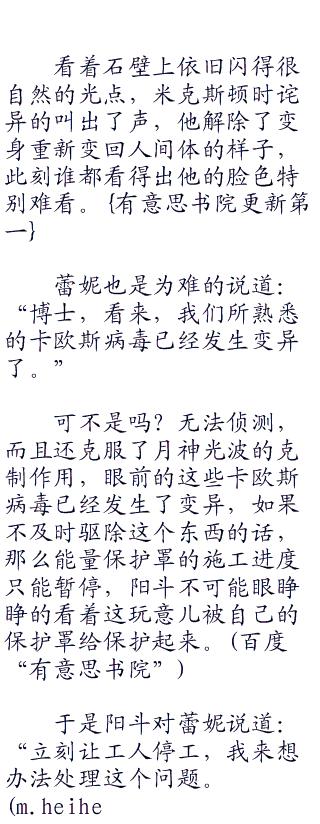 看着石壁上依旧闪得很
自然的光点，米克斯顿时诧
异的叫出了声，他解除了变
身重新变回人间体的样子，
此刻谁都看得出他的脸色特
别难看。{有意思书院更新第
一}
蕾妮也是为难的说道：
“博士，看来，我们所熟悉
的卡欧斯病毒已经发生变异
了。”
可不是吗？无法侦测，
而且还克服了月神光波的克
制作用，眼前的这些卡欧斯
病毒已经发生了变异，如果
不及时驱除这个东西的话，
那么能量保护罩的施工进度
只能暂停，阳斗不可能眼睁
睁的看着这玩意儿被自己的
保护罩给保护起来。(百度
“有意思书院”)
于是阳斗对蕾妮说道：
“立刻让工人停工，我来想
办法处理这个问题。
(m.heihe